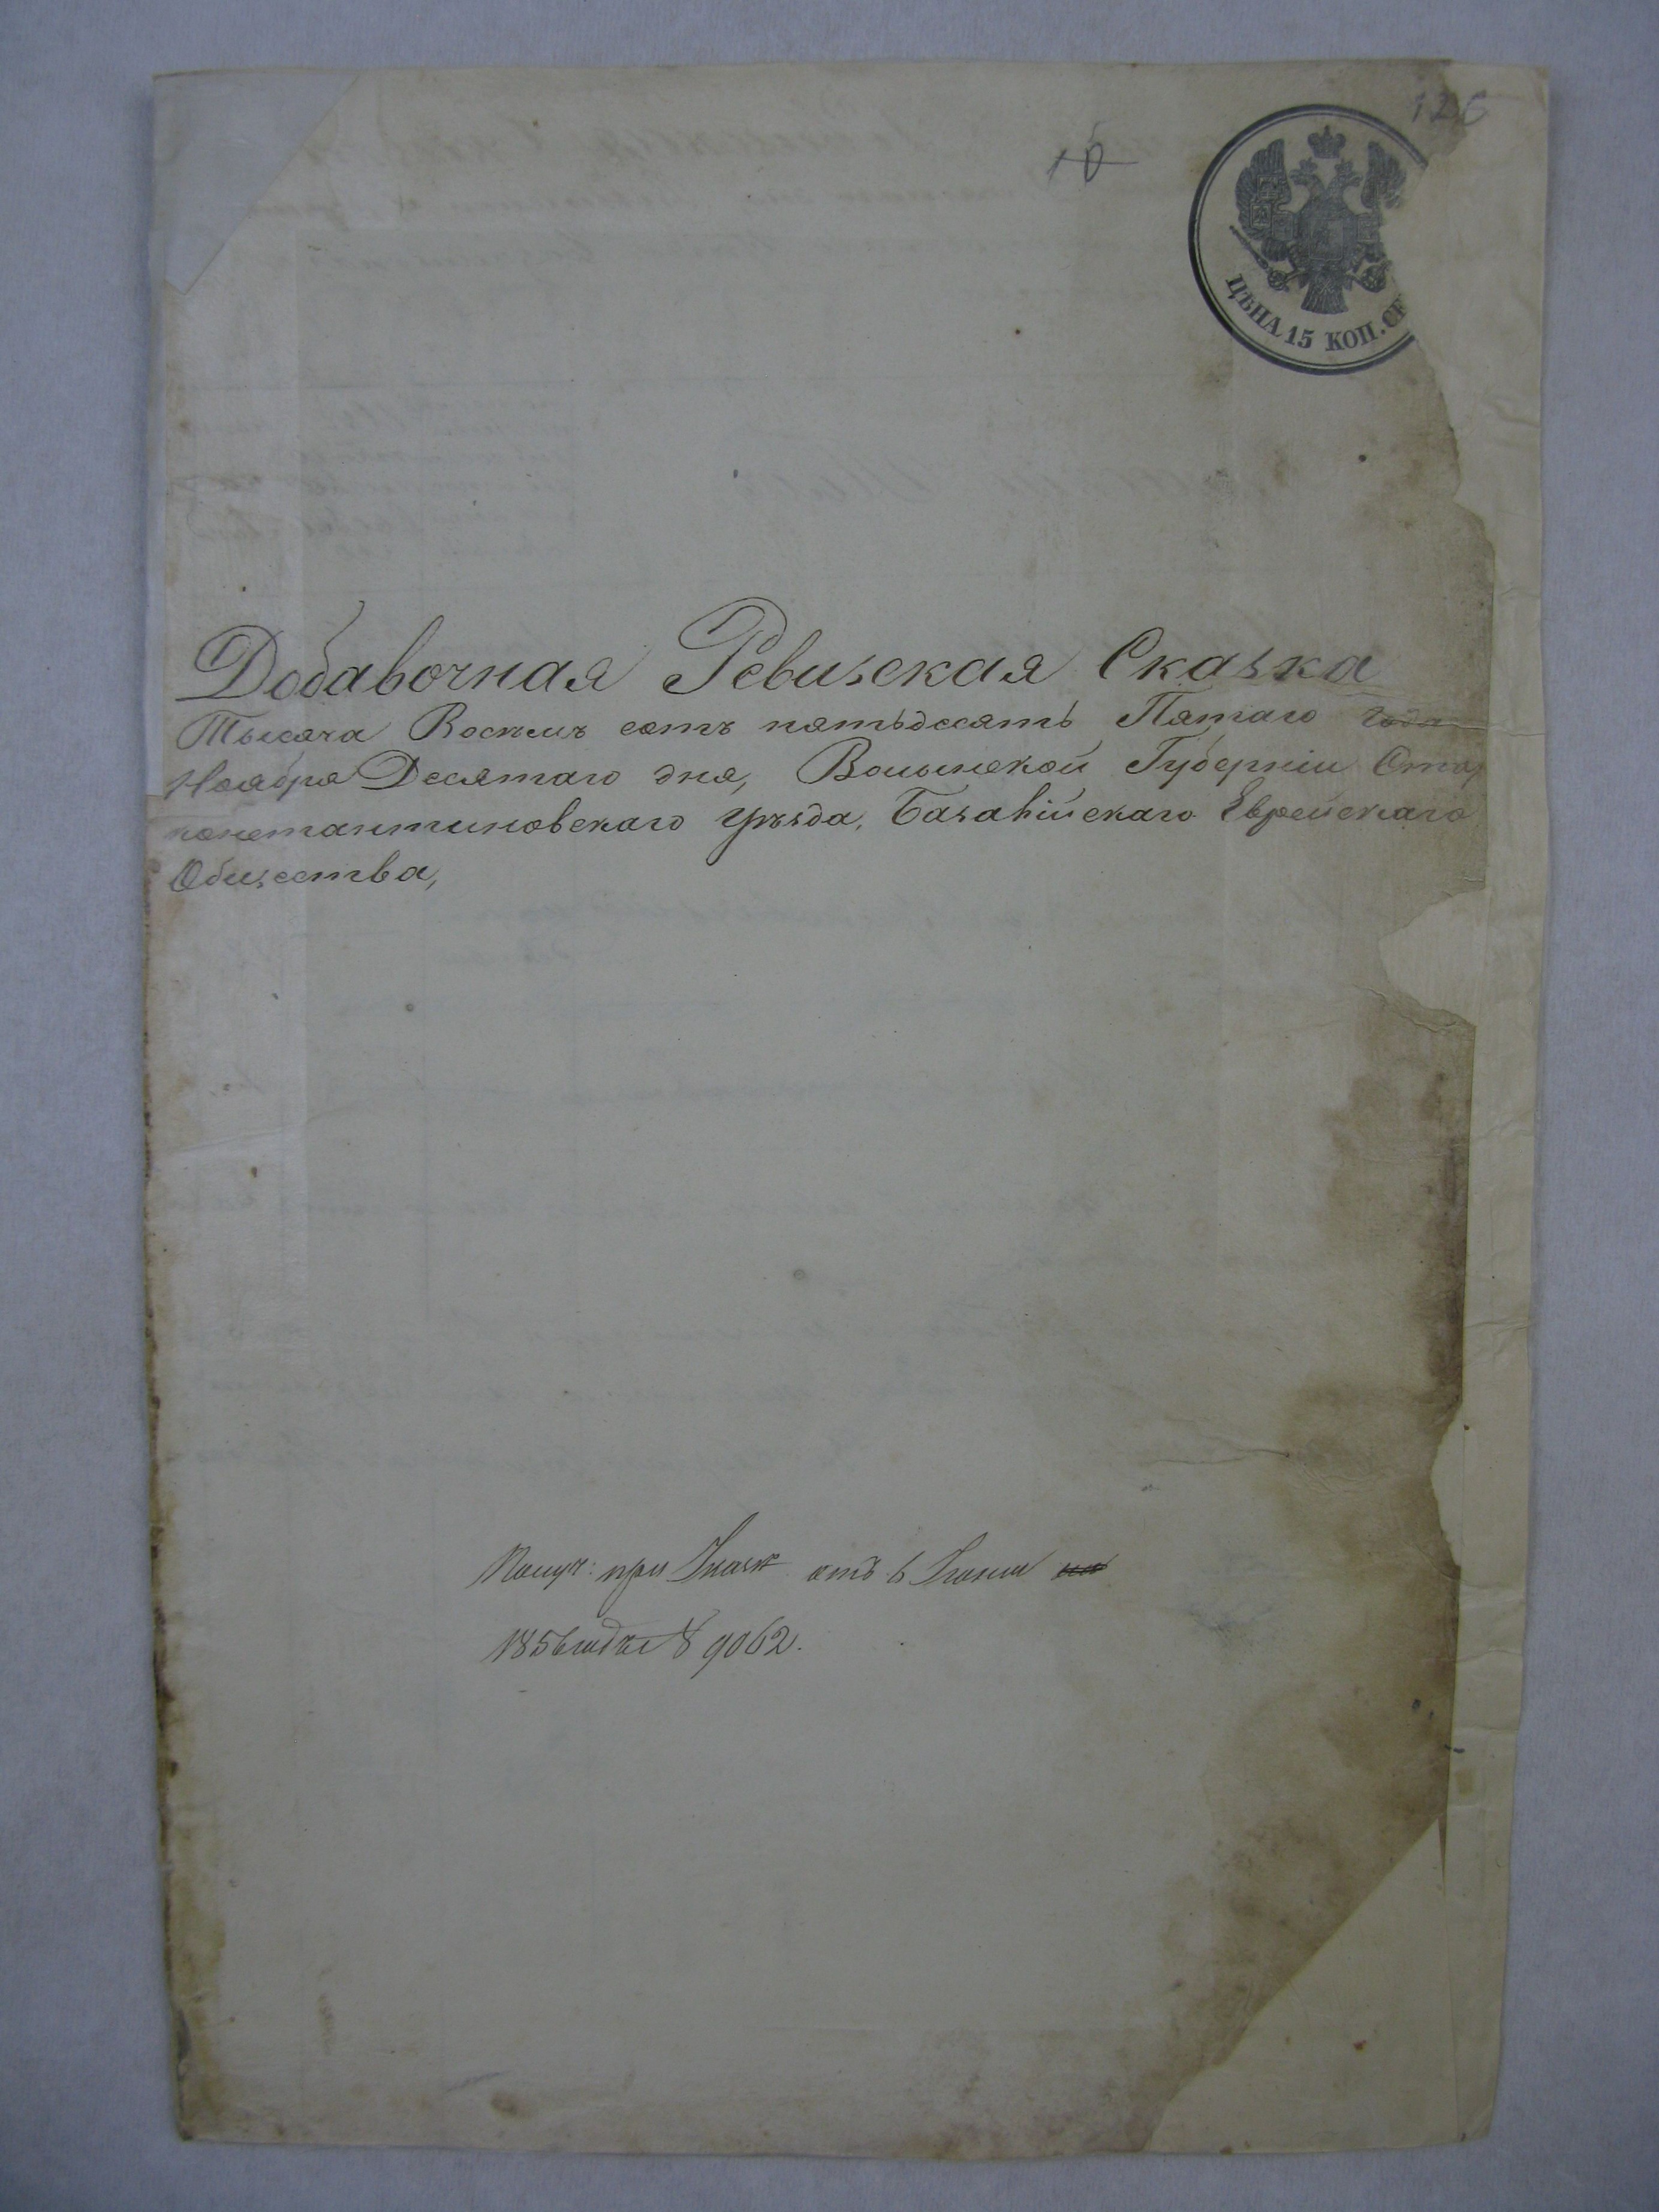 126
10
ЦѢНА 15 КОП. СЕ
Добавочная Ревизская Сказка
Тысяча Восемь сотъ пятьдесятъ Пятаго года
Ноября Десятаго дня, Волынской Губерніи Старо
константиновскаго уѣзда, Базалійскаго Еврейскаго
Общества,
Получ: при отъ 6 Іюня
1856 года № 9062.